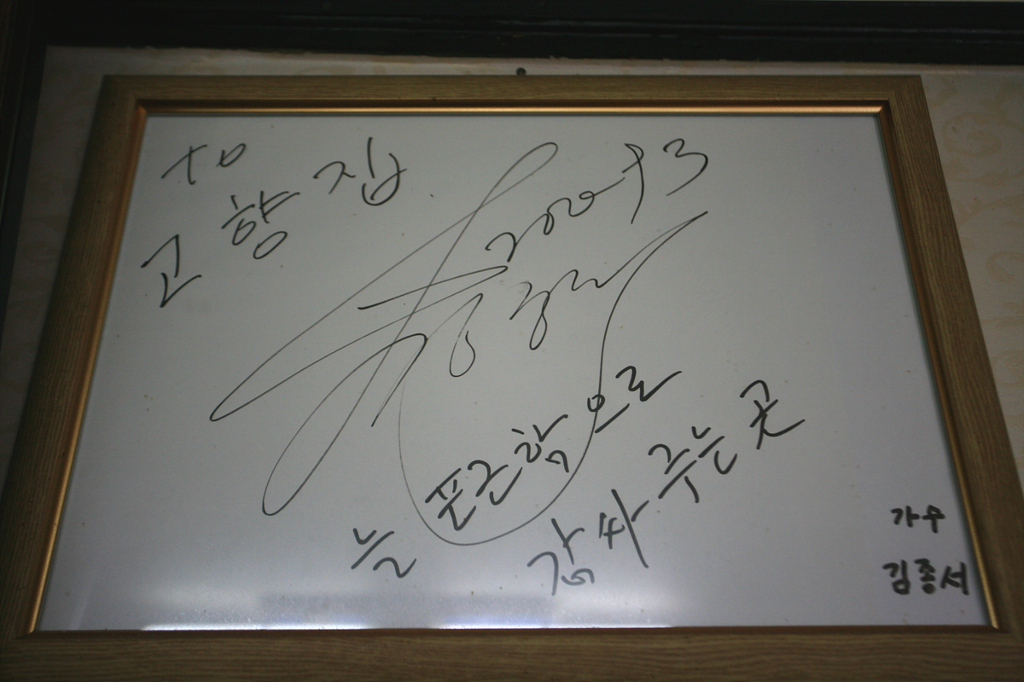 to
고향집
200 93
늘 푸근함으로
감싸주는 곳
가수
김종서